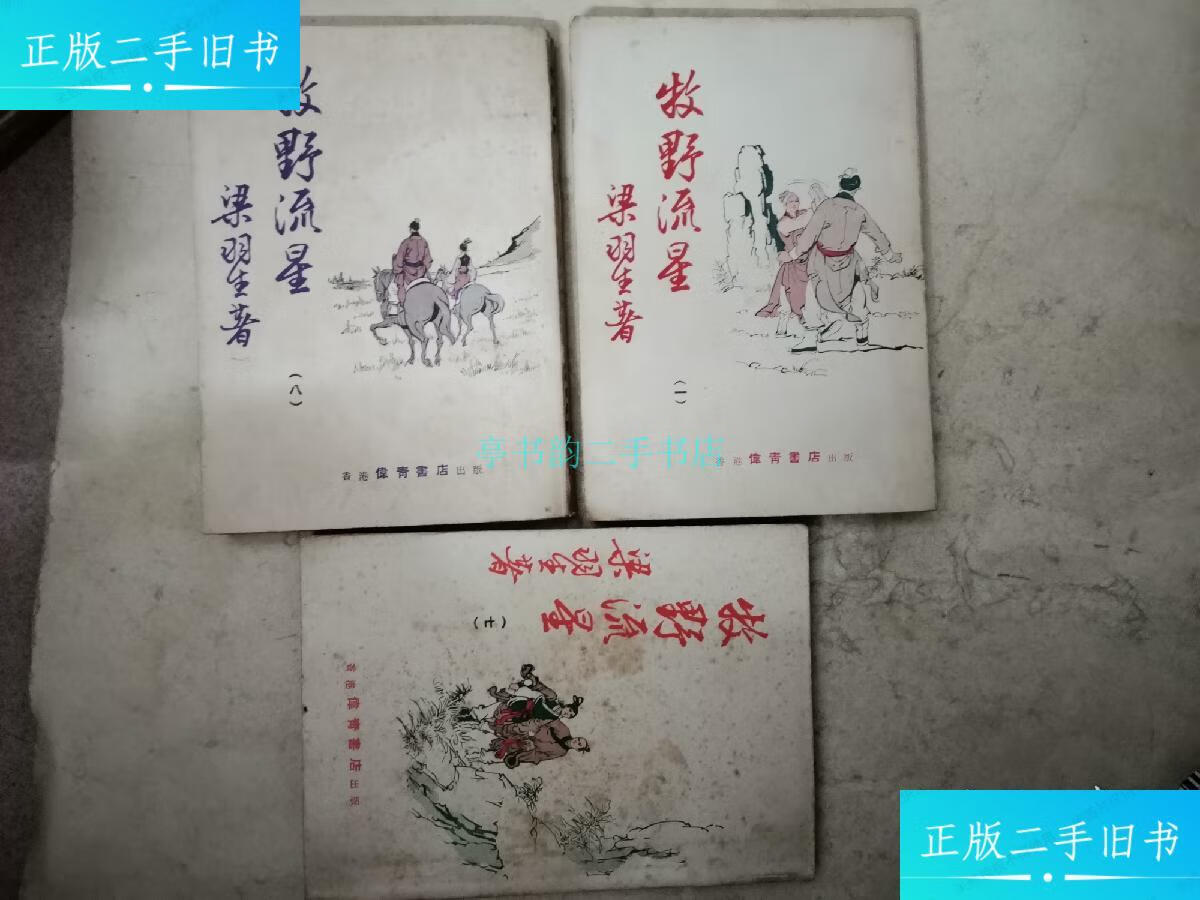 正版二手旧书
牧野流星
梁羽生著
（八）
香港偉青書店出版
牧野流星
梁羽生著
（一）
香港偉青書店出版
亭书韵二手书店
牧野流星
梁羽生著
（七）
香港偉青書店出版
正版二手旧书